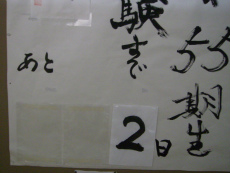 55期生
験まで
あと
2日